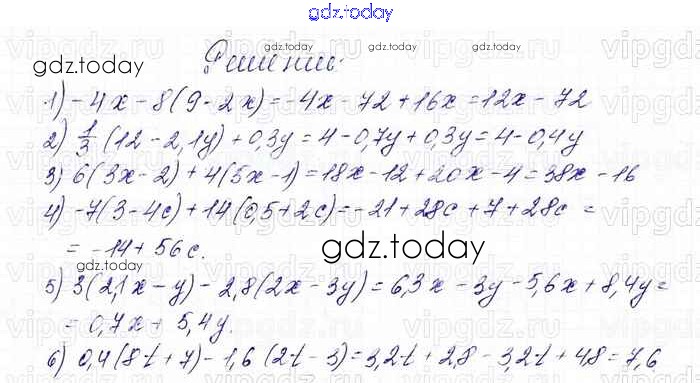 gdz.today
Решение:
gdz.today
gdz.today
gdz.today
gdz.today
1) -4x-8(9-2x)=-4x-72+16x=12x-72
2) 1/3 (12-2,1y)+0,3y=4-0,7y+0,3y=4-0,4y
3) 6(3x-2)+4(5x-1)=18x-12+20x-4=38x-16
4) -7(3-4c)+14(0,5+2c)=-21+28c+7+28c=
=-14+56c.
gdz.today
gdz.today
5) 3(2,1x-y)-2,8(2x-3y)=6,3x-3y-5,6x+8,4y=
=0,7x+5,4y.
6) 0,4(8t+7)-1,6(2t-3)=3,2t+2,8-3,2t+4,8=7,6